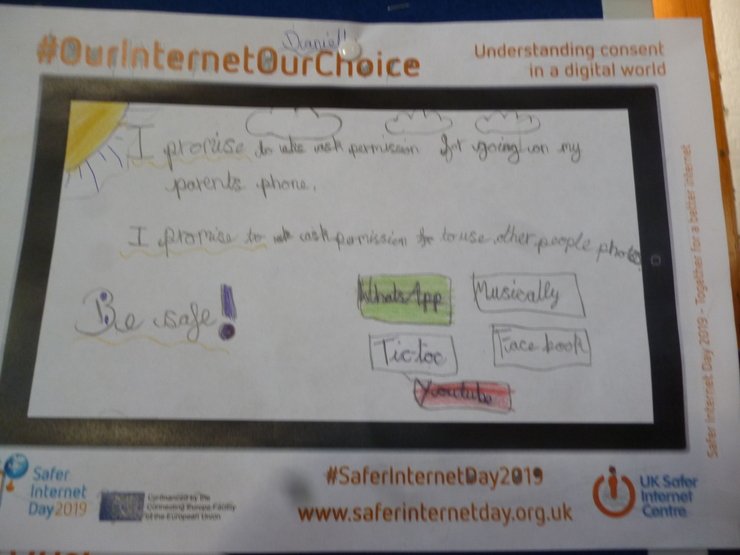 Daniel!
#OurInternetOurChoice
Understanding consent
in a digital world
I promise to ask permission for going on my
parents phone.
I promise to ask permission to use other people photos
Be safe!
WhatsApp
Musically
Tic-toc
Face book
Youtube
Safer Internet Day 2019 - Together for a better internet
Safer
Internet
Day 2019
Co-financed by the
Connecting Europe Facility
of the European Union
#SaferInternetDay2019
www.saferinternetday.org.uk
UK Safer
Internet
Centre